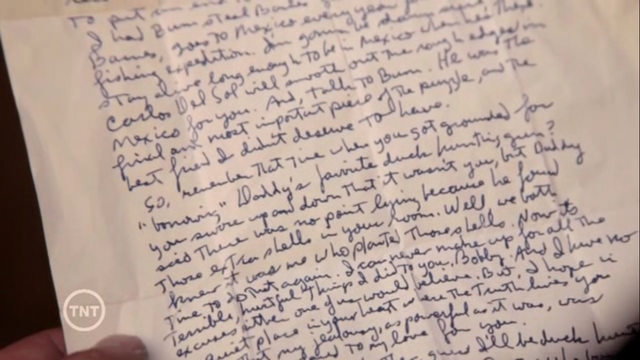 To put an end to
I had Bum steal Barnes'
Barnes, goes to Mexico every year for
fishing expedition. I'm gonna be
stay alive long enough to be in Mexico when he's there.
Carlos Del Sol will smooth out the rough edges in
Mexico for you. And, talk to Bum. He was the
final and most important piece of the puzzle, and the
best friend I didn't deserve to have.
So, remember that time when you got grounded for
"borrowing" Daddy's favorite duck hunting gun?
you swore up and down that it wasn't you, but Daddy
said there was no point lying because he found
those extra shells in your room. Well, we both
knew it was me who planted those shells. Now it's
time to do that again. I can never make up for all the
terrible, hurtful things I did to you, Bobby. And I have no
excuses either one of us would believe. But, I hope in
quiet place in your heart where the truth lives you
that my jealousy, as powerful as it was, was
to my love for you.
I'll be duck hunting
TNT